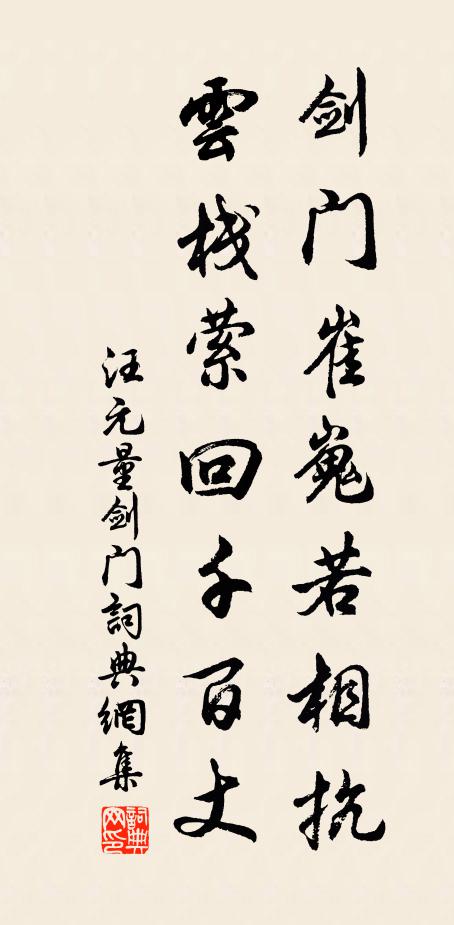 剑门崔嵬若相抗
雲栈萦回千百丈
汪元量剑门詞典網集
詞典网印